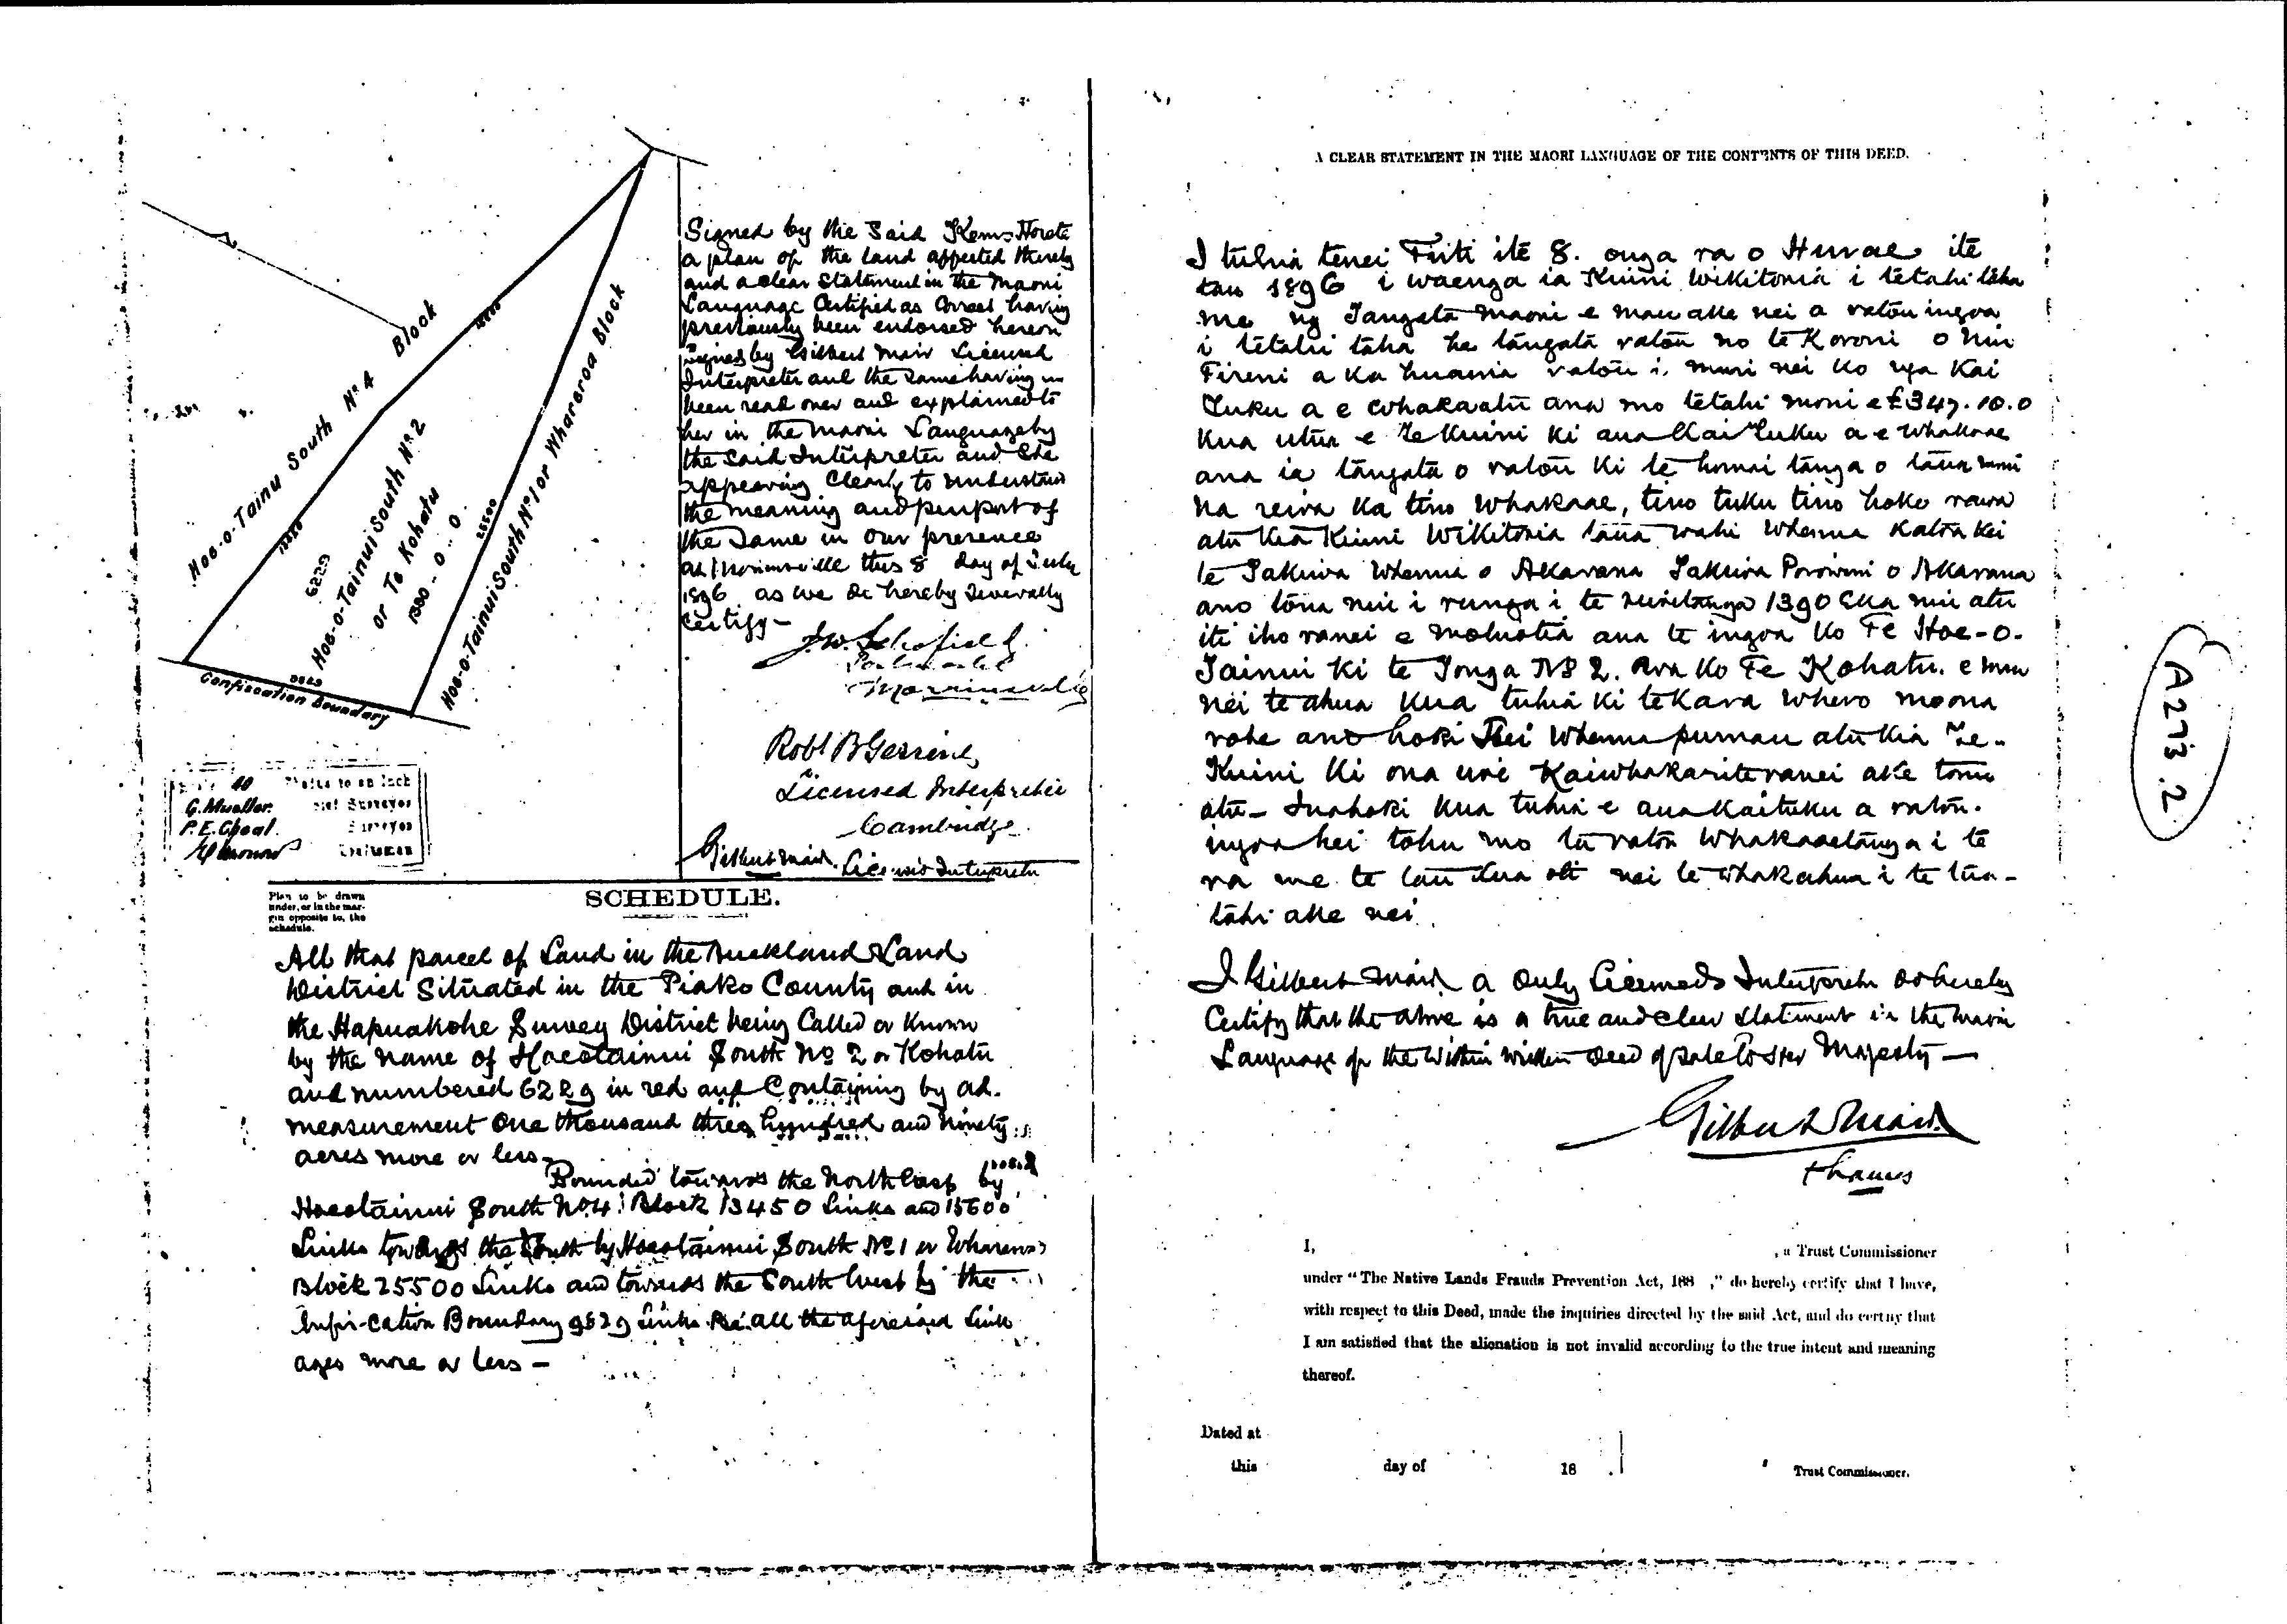 Hoe-o-Tainui South Nº 4 Block
Hoe-o-Tainui South Nº 2
or Te Kohatu
1390 - 0 . 0.
6229
25500
Hoe-o-Tainui South Nº 1 or Whareroa Block
Confiscation Boundary
40 Chains to an Inch
G. Mueller. Surveyor
P. E. Cheal. Surveyor
Draftsman
Signed by the Said Horeta
a plan of the land affected thereby
and a clear Statement in the Maori
Language Certified as Correct having
previously been endorsed hereon
signed by Gilbert Mair Licensed
Interpreter and the same having
been read over and explained to
her in the Maori Language by
the said Interpreter and She
appearing Clearly to understand
the meaning and purport of
the Same in our presence
at Morrinsville this 8 day of July
1896 as we do hereby Severally
Certify -
J. W. Schofield
Postmaster
Morrinsville
Robt
Licensed Interpreter
Cambridge.
Gilbert Mair. Licensed Interpreter
Plan to be drawn
under, or in the mar-
gin opposite to, the
schedule.
SCHEDULE.
All that parcel of Land in the Auckland Land
District Situated in the Piako County and in
the Hapuakohe Survey District being Called or Known
by the name of Hoeotainui South Nº 2 or Kohatu
and numbered 6229 in red and Containing by ad.
measurement One thousand three hundred and ninety
acres more or less -
Bounded towards the North East by
Hoeotainui South Nº 4 Block 13450 Links and 15600
Links towards the South by Hoeotainui South Nº 1 or Whareroa
Block 25500 Links and towards the South West by the
Confis-cation Boundary 9829 Links Be all the aforesaid Link
ages more or less -
A CLEAR STATEMENT IN THE MAORI LANGUAGE OF THE CONTENTS OF THIS DEED.
I tuhia tenei Tiiti ite 8. onga ra o Hurae ite
tau 1896 i waenga ia Kuini Wikitoria i tetahi taha
me ng Tangata Maori e mau ake nei a ratou ingoa
i tetahi taha he tangata ratou no te Koroni o Niu
Tireni a ka huaina ratou i muri nei ko nga Kai
Tuku a e whakaatu ana mo tetahi moni e £347.10.0
Kua utua e Te Kuini ki aua Kai Tuku a e Whakaae
ana ia tangata o ratou ki te homai tanga o taua moni
na reira ka tino Whakaae, tino tuku tino hoko rawa
atu kia Kuini Wikitoria taua wahi Whenua katoa kei
te Takiwa Whenua o Akarana Takiwa Porowini o Akarana
ano tona nui i runga i te ruritanga 1390 eka nui atu
iti iho ranei e mohiotia ana te ingoa ko Te Hoe-o-
Tainui ki te Tonga Nº 2. Ara ko Te Kohatu. e mau
nei te ahua kua tuhia ki te Kara whero moona
rohe ano hoki Hei Whenua pumau atu kia Te-
Kuini ki ona uri Kaiwhakarite ranei ake tonu
atu - Inahoki kua tuhia e aua Kaituku a ratou.
ingoa hei tohu mo ta ratou Whakaaetanga i te
ra me te tau kua oti nei te whakahua i te tua-
tahi ake nei.
I Gilbert Mair a Duly Licensed Interpreter do hereby
Certify that the above is a true and clear Statement in the Maori
Language of the Within written Deed of Sale to Her Majesty -
Gilbert Mair.
Thames
I, , a Trust Commissioner
under "The Native Lands Frauds Prevention Act, 188 ," do hereby certify that I have,
with respect to this Deed, made the inquiries directed by the said Act, and do certify that
I am satisfied that the alienation is not invalid according to the true intent and meaning
thereof.
Dated at
this day of 18 .
Trust Commissioner.
A273.2